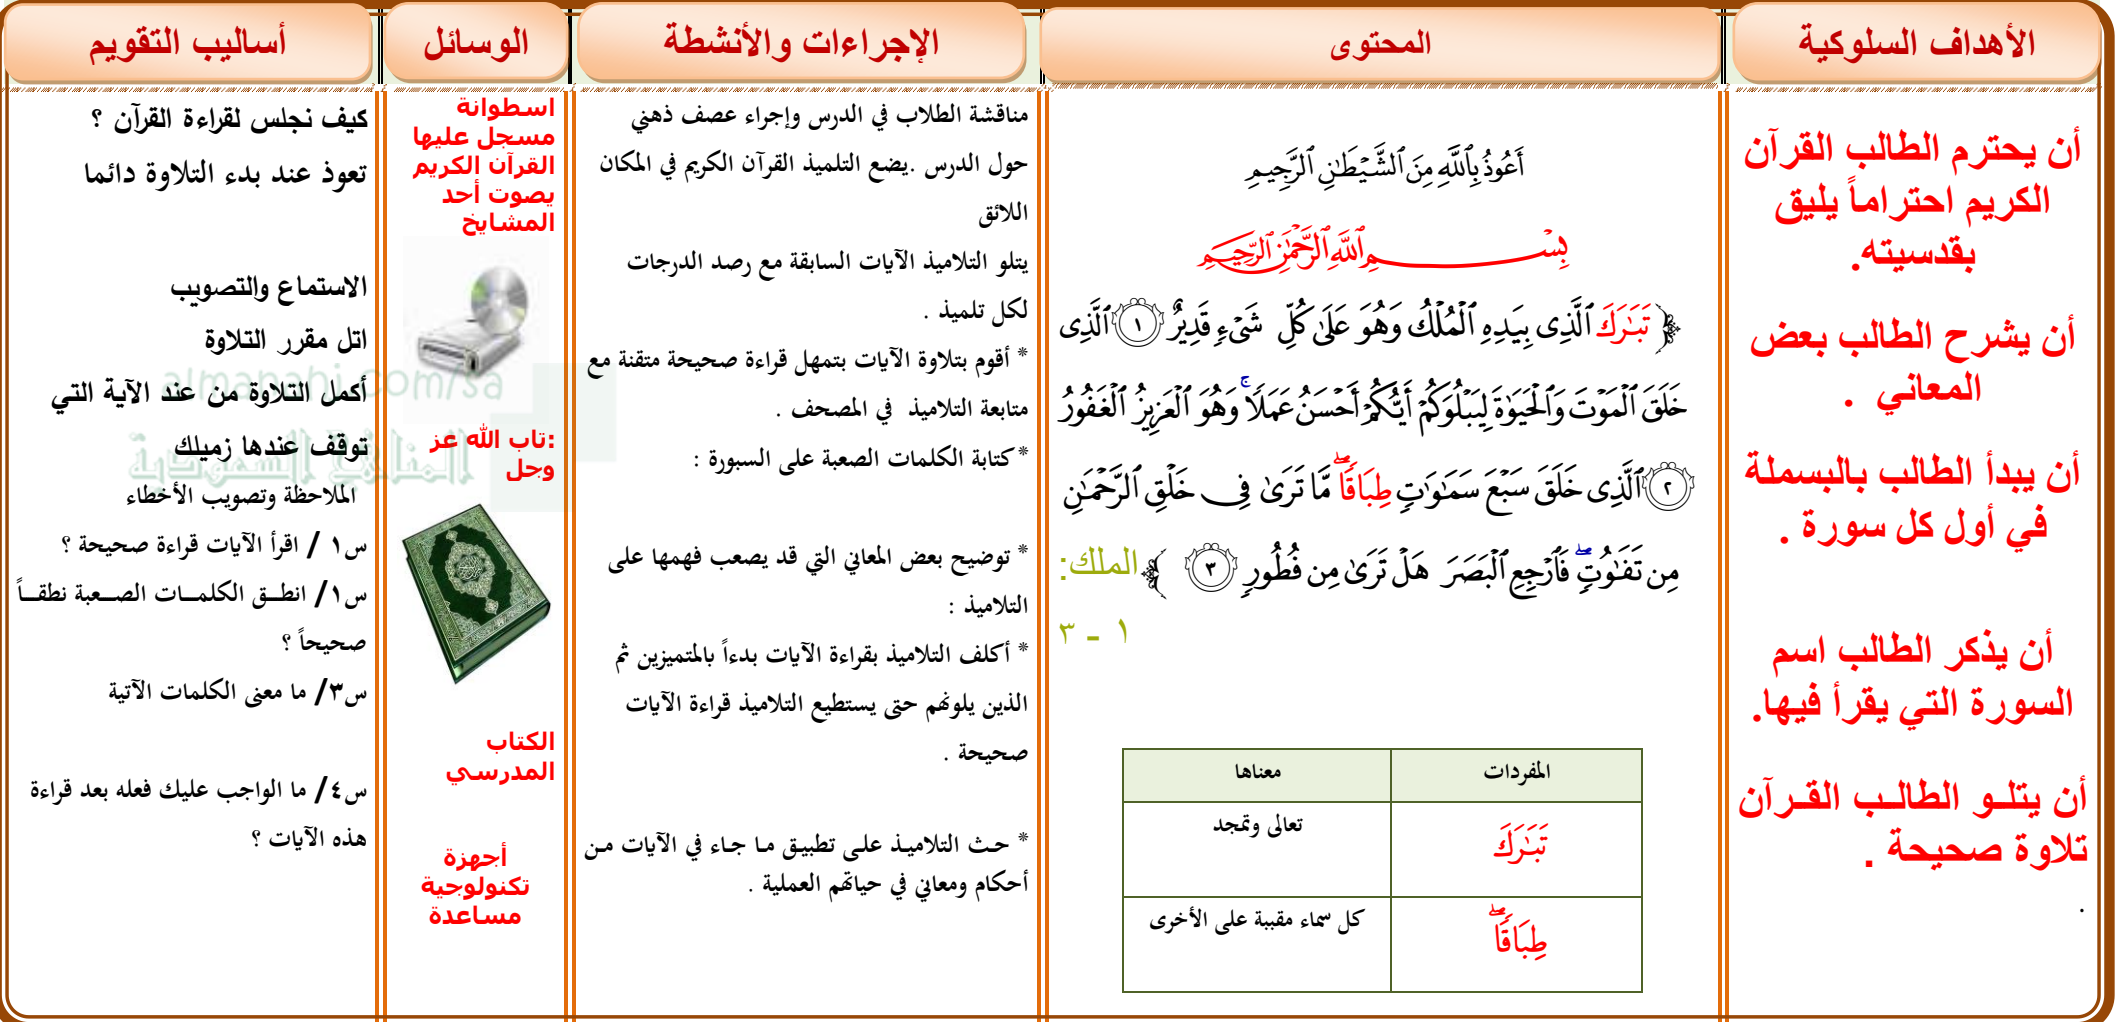 الأهداف السلوكية
المحتوى
الإجراءات والأنشطة
الوسائل
أساليب التقويم
أن يحترم الطالب القرآن
الكريم احتراماً يليق
بقدسيته.
أن يشرح الطالب بعض
المعاني .
أن يبدأ الطالب بالبسملة
في أول كل سورة .
أن يذكر الطالب اسم
السورة التي يقرأ فيها.
أن يتلــو الطالــب القــرآن
تلاوة صحيحة .
.
أَعُوذُ بِٱللَّهِ مِنَ ٱلشَّيْطَٰنِ ٱلرَّجِيمِ
بِسْمِ ٱللَّهِ ٱلرَّحْمَٰنِ ٱلرَّحِيمِ
﴿ تَبَٰرَكَ ٱلَّذِى بِيَدِهِ ٱلْمُلْكُ وَهُوَ عَلَىٰ كُلِّ شَىْءٍ قَدِيرٌ ١ ٱلَّذِى
خَلَقَ ٱلْمَوْتَ وَٱلْحَيَوٰةَ لِيَبْلُوَكُمْ أَيُّكُمْ أَحْسَنُ عَمَلًا ۚ وَهُوَ ٱلْعَزِيزُ ٱلْغَفُورُ
٢ ٱلَّذِى خَلَقَ سَبْعَ سَمَٰوَٰتٍ طِبَاقًا ۖ مَّا تَرَىٰ فِى خَلْقِ ٱلرَّحْمَٰنِ
مِن تَفَٰوُتٍ ۖ فَٱرْجِعِ ٱلْبَصَرَ هَلْ تَرَىٰ مِن فُطُورٍ ٣ ﴾ الملك:
١ - ٣
المفردات
معناها
تَبَٰرَكَ
تعالى وتمجد
طِبَاقًا ۖ
كل سماء مقببة على الأخرى
مناقشة الطلاب في الدرس وإجراء عصف ذهني
حول الدرس .يضع التلميذ القرآن الكريم في المكان
اللائق
يتلو التلاميذ الآيات السابقة مع رصد الدرجات
لكل تلميذ .
* أقوم بتلاوة الآيات بتمهل قراءة صحيحة متقنة مع
متابعة التلاميذ في المصحف .
*كتابة الكلمات الصعبة على السبورة :
* توضيح بعض المعاني التي قد يصعب فهمها على
التلاميذ :
* أكلف التلاميذ بقراءة الآيات بدءاً بالمتميزين ثم
الذين يلونهم حتى يستطيع التلاميذ قراءة الآيات
صحيحة .
* حـث التلاميـذ علـى تطبيـق مـا جـاء في الآيات مـن
أحكام ومعاني في حياتهم العملية .
اسطوانة
مسجل عليها
القرآن الكريم
بصوت أحد
المشايخ
:تاب الله عز
وجل
الكتاب
المدرسي
أجهزة
تكنولوجية
مساعدة
كيف نجلس لقراءة القرآن ؟
تعوذ عند بدء التلاوة دائما
الاستماع والتصويب
اتل مقرر التلاوة
أكمل التلاوة من عند الآية التي
توقف عندها زميلك
الملاحظة وتصويب الأخطاء
س١ / اقرأ الآيات قراءة صحيحة ؟
س١/ انطــق الكلمــات الصــعبة نطقــاً
صحيحاً ؟
س٣/ ما معنى الكلمات الآتية
س٤/ ما الواجب عليك فعله بعد قراءة
هذه الآيات ؟
almanahj.com/sa
المناهج السعودية